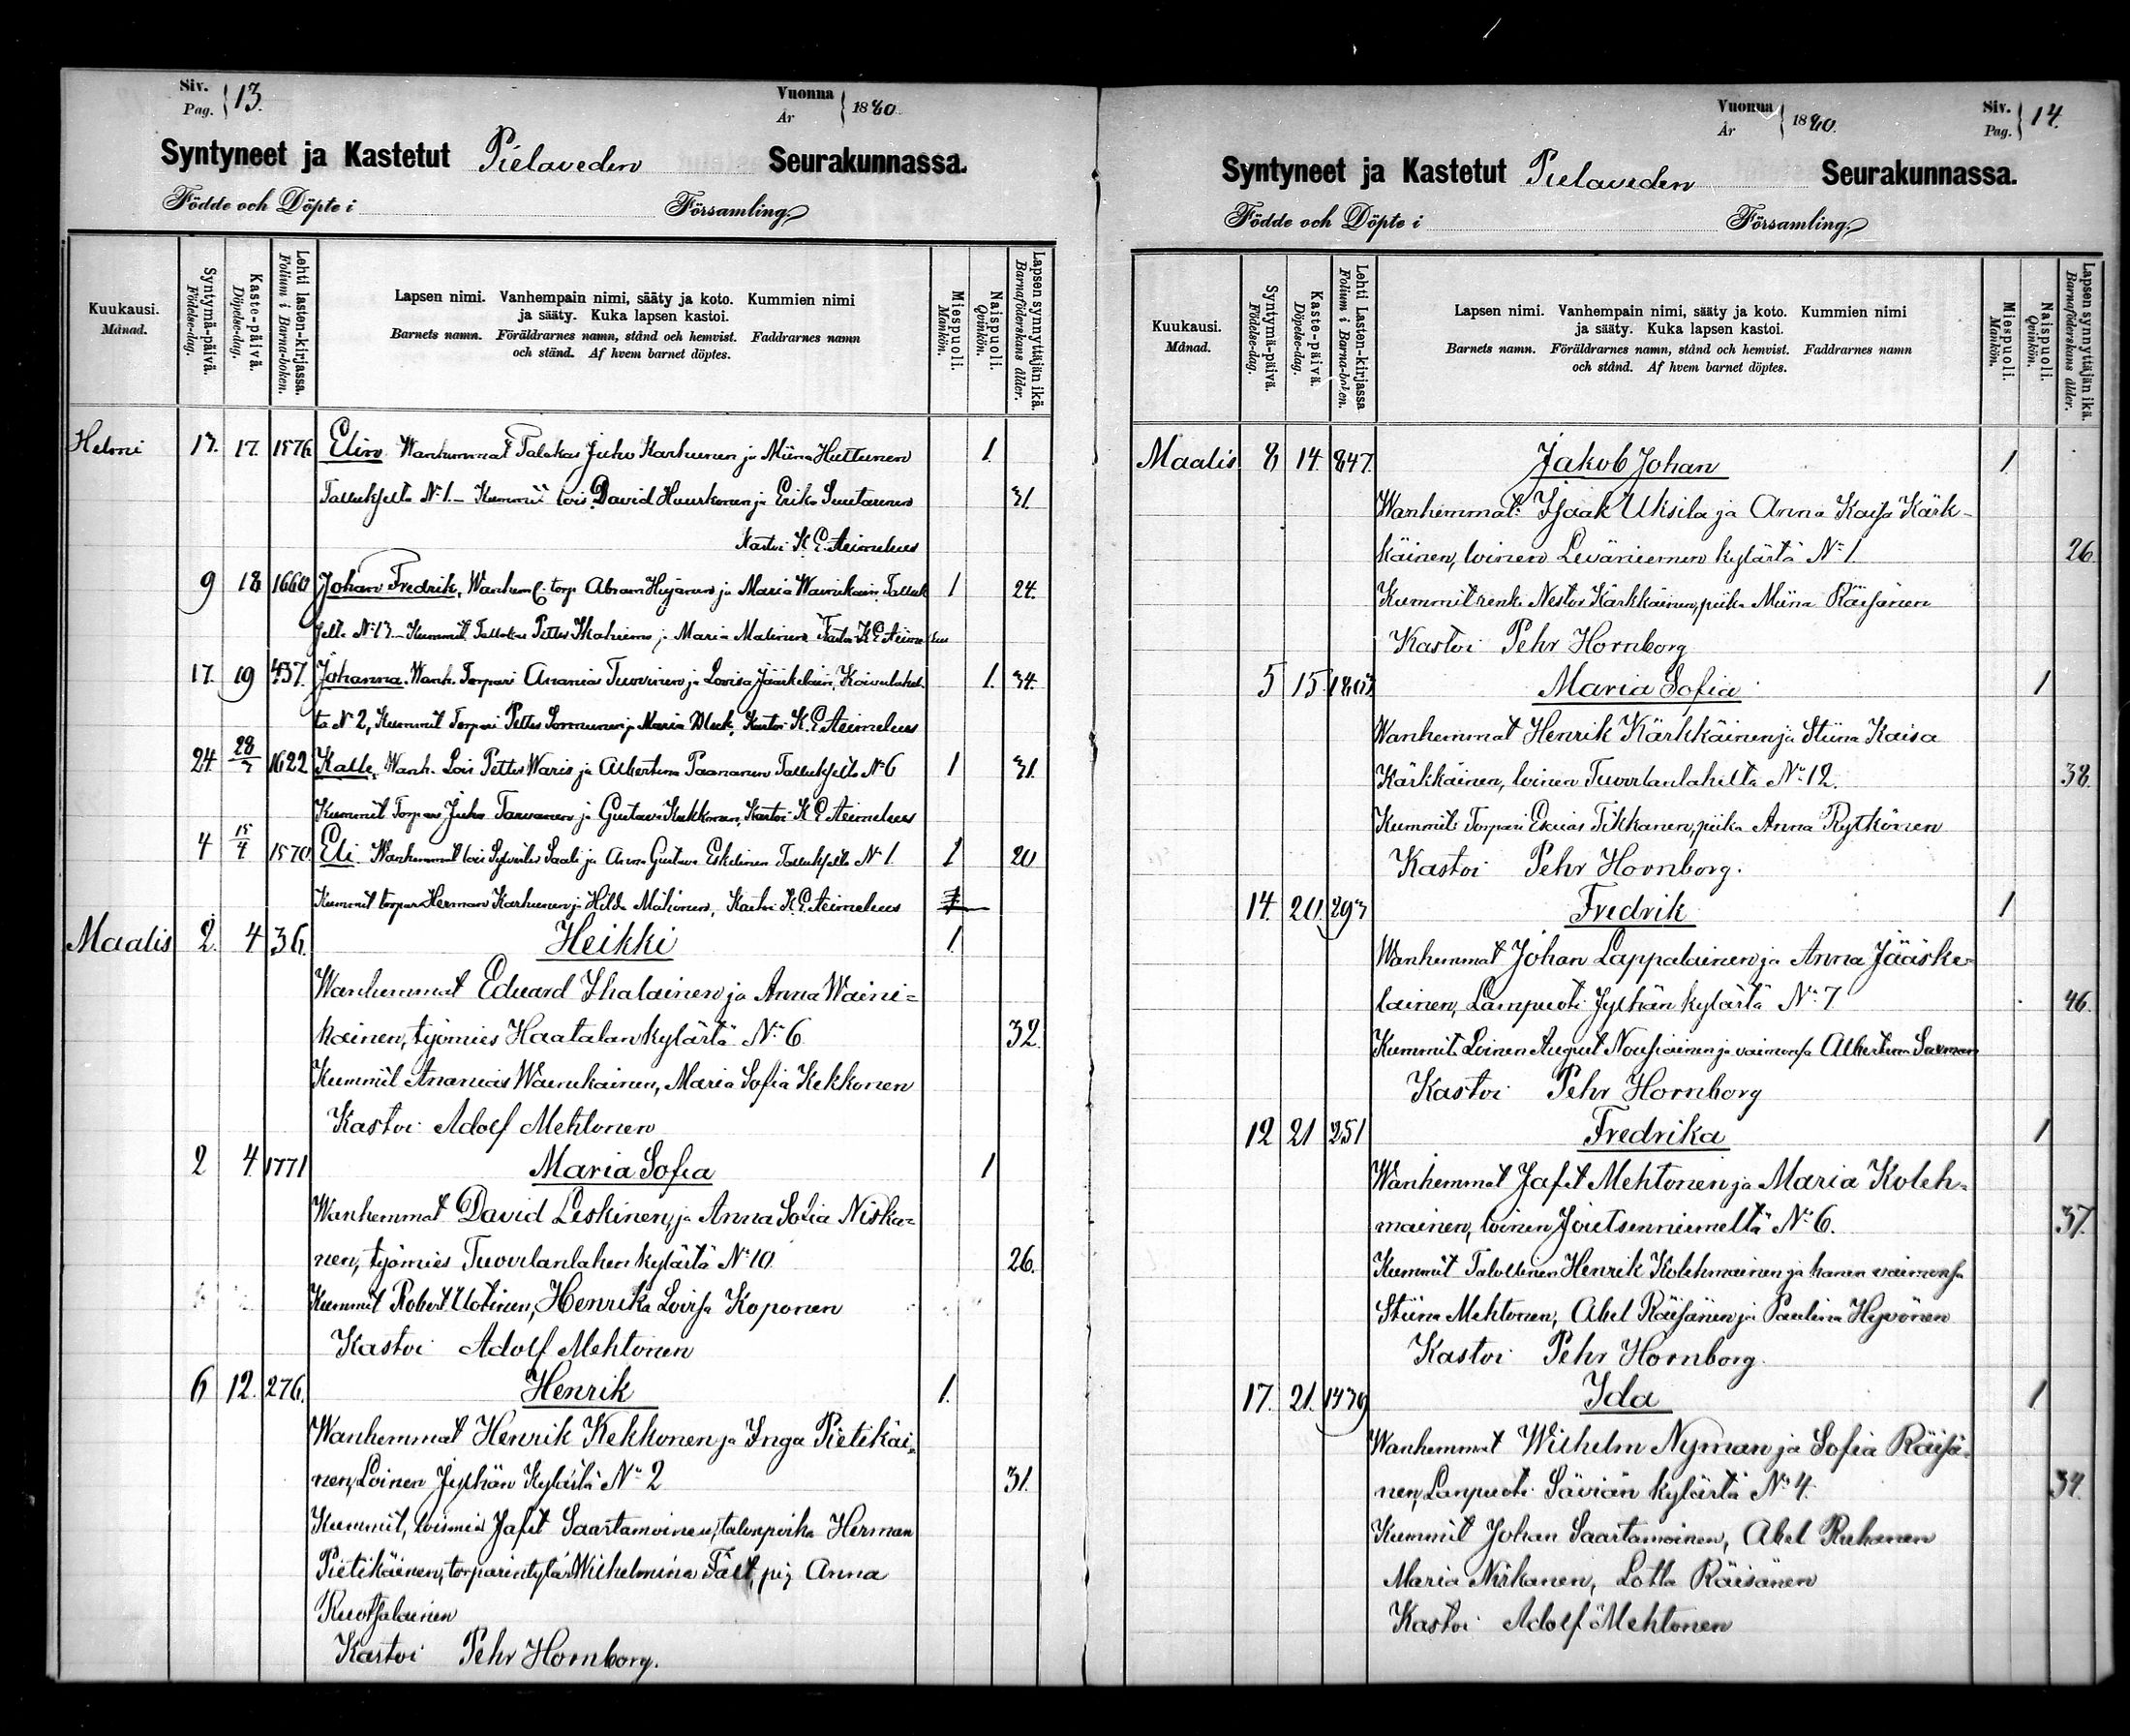 Siv.
Pag. 13.
Vuonna
År 1880.
Syntyneet ja Kastetut Pielaveden Seurakunnassa.
Födde och Döpte i Församling.
Kuukausi.
Månad.
Syntymä-päivä.
Födelse-dag.
Kaste-päivä.
Döpelse-dag.
Lehti lasten-kirjassa.
Folium i Barna-boken.
Lapsen nimi. Vanhempain nimi, sääty ja koto. Kummien nimi
ja sääty. Kuka lapsen kastoi.
Barnets namn. Föräldrarnes namn, stånd och hemvist. Faddrarnes namn
och stånd. Af hvem barnet döptes.
Miespuoli.
Mankön.
Naispuoli.
Qvinkön.
Lapsen synnyttäjän ikä.
Barnaföderskans ålder.
Helmi 17. 17. 1576 Elin Wanhemmat Talokas Juho Karhunen ja Miina Huttunen 1.
N:1. Kummit lois David Huuskonen ja 31.
Kastoi K. E. Aeimelaeus
9 18 1660 Johan Fredrik, torp Abram ja Maria 1 24.
N:13 Kummit ja Maria Kastoi K E
17. 19 437. Johanna. Wanh. Torpari Ananias Tuovinen ja Lovisa Jääskeläin, 1. 34.
ta N 2, Kummit Torpari Petter ja Maria Kastoi K. E. Aeimelaeus
24. 28/3 1622 Kalle, Wanh. Lois Petter Waris ja Albertina Paananen N:6 1 31.
Kummit Torpari Juho ja Gustava Kastoi K E Aeimelaeus
4 15/4 1570 Eli Wanhemmat lois ja Anna Gustava Eskelinen N:1 1 20
Kummit torpari Herman Karhunen ja Hilda Kastoi K. E. Aeimelaeus
Maalis 2. 4 36. Heikki 1.
Wanhemmat Eduard Ihalainen ja Anna Waini=
kainen, työmies Haatalan kylästä N:6 32.
Kummit Ananias Wainikainen, Maria Sofia Kekkonen
Kastoi Adolf Mehtonen
2 4. 1771 Maria Sofia 1
Wanhemmat David Leskinen, ja Anna Sofia Niska=
nen, työmies Tuovilanlahen kylästä N:10. 26.
Kummit Robert Uotinen, Henrika Lovisa Koponen
Kastoi Adolf Mehtonen
6 12. 276. Henrik 1.
Wanhemmat Henrik Kekkonen ja Inga Pietikäi=
nen, Loinen Jylhän Kylästä N:2 31.
Kummit, loismies Jafet Saastamoinen, talonpoika Herman
Pietikäinen, torparintytär Wilhelmina Fält, pig Anna
Ruotsalainen
Kastoi Pehr Hornborg.
Vuonna
År 1880.
Siv.
Pag. 14.
Syntyneet ja Kastetut Pielaveden Seurakunnassa.
Födde och Döpte i Församling.
Kuukausi.
Månad.
Syntymä-päivä.
Födelse-dag.
Kaste-päivä.
Döpelse-dag.
Lehti Lasten-kirjassa
Folium i Barna-boken.
Lapsen nimi. Vanhempain nimi, sääty ja koto. Kummien nimi
ja sääty. Kuka lapsen kastoi.
Barnets namn. Föräldrarnes namn, stånd och hemvist. Faddrarnes namn
och stånd. Af hvem barnet döptes.
Miespuoli.
Mankön.
Naispuoli.
Qvinkön.
Lapsen synnyttäjän ikä.
Barnaföderskans ålder.
Maalis 8 14. 847. Jakob Johan 1
Wanhemmat: Isaak Uksila ja Anna Kaisa Kärk-
käinen, loinen Leväniemen kylästä N:1. 26.
Kummit renki Nestor Kärkkäinen, piika Miina Räisänen
Kastoi Pehr Hornborg
5 15. 1803 Maria Sofia 1
Wanhemmat Henrik Kärkkäinen ja Stiina Kaisa
Kärkkäinen, loinen Tuovilanlahelta N:12. 38.
Kummit Torpari Esaias Tikkanen, piika Anna Rytkönen
Kastoi Pehr Hornborg.
14. 20. 293 Fredrik 1
Wanhemmat Johan Lappalainen ja Anna Jääske=
läinen, Lampuoti Jylhän kylästä N:7 46.
Kummit Loinen August Nousiainen ja vaimonsa Albertina
Kastoi Pehr Hornborg
12 21 251 Fredrika 1
Wanhemmat Jafet Mehtonen ja Maria Koleh=
mainen, loinen Joutsenniemeltä N:6. 37.
Kummit Talollinen Henrik Kolehmainen ja hanen vaimonsa
Stiina Mehtonen, Abel Räisänen ja Paulina Hyvönen
Kastoi Pehr Hornborg.
17. 21. 1439 Ida 1.
Wanhemmat Wilhelm Nyman ja Sofia Räisä=
nen, Lanpuoti Säviän kylästä N:4. 34.
Kummit Johan Saastamoinen, Abel Ruhanen
Maria Niskanen, Lotta Räisänen
Kastoi Adolf Mehtonen